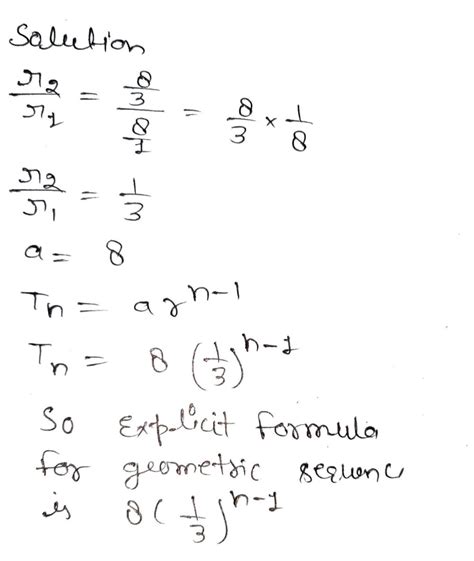 Salution
r2/r1 = (8/3)/(8/1) = 8/3 × 1/8
r2/r1 = 1/3
a = 8
Tn = ar^n-1
Tn = 8 (1/3)^n-1
So Explicit formula
for geometric sequenc
is 8(1/3)^n-1